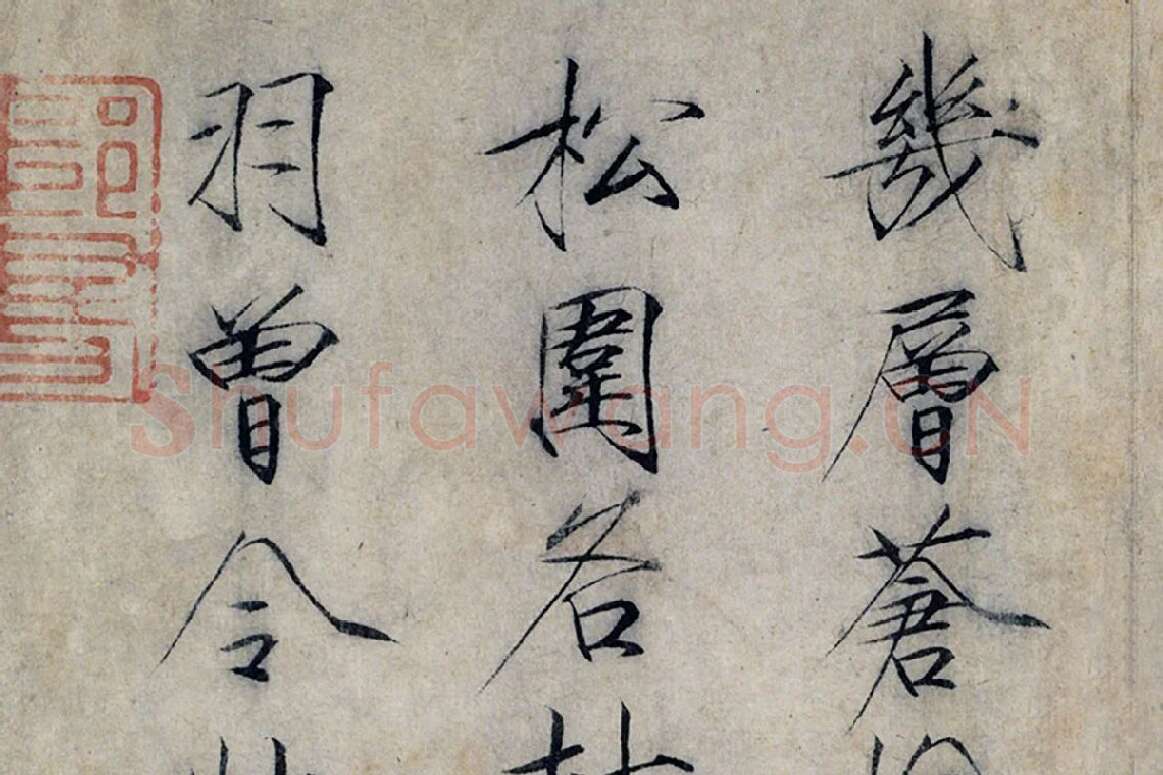 幾層蒼
松圍
羽曾令
Shufawang.CN